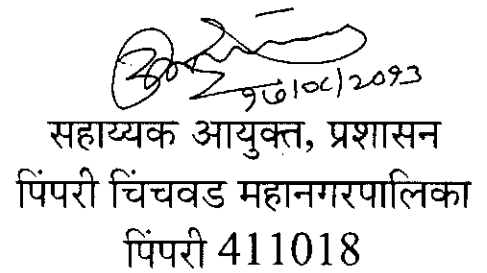 १७|०८|२०१३
सहाय्यक आयुक्त, प्रशासन
पिंपरी चिंचवड महानगरपालिका
पिंपरी 411018